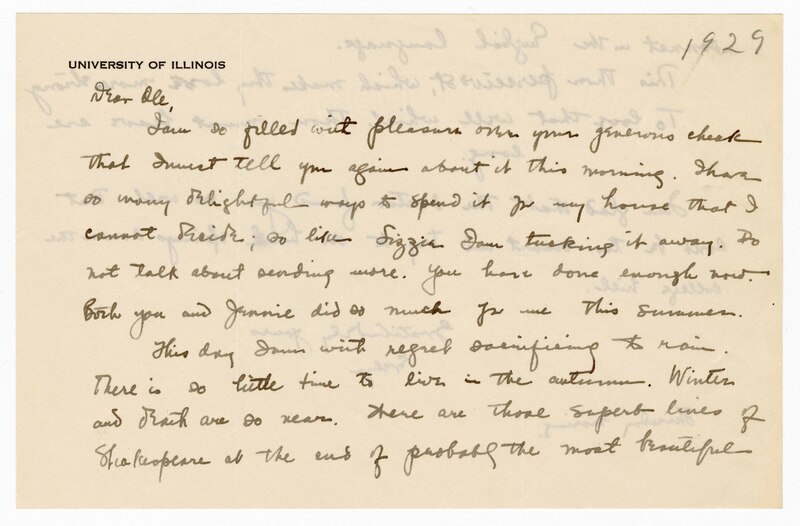 1929
UNIVERSITY OF ILLINOIS
Dear Ole,
I am so filled with pleasure over your generous check
that I must tell you again about it this morning. I have
so many delightful ways to spend it for my house that I
cannot decide, so like Lizzie I am tucking it away. Do
not talk about sending more. You have done enough now.
Both you and Jennie did so much for me this summer.
This day I am with regret sacrificing to rain.
There is so little time to live in the autumn. Winter
and death are so near. There are those superb lines of
Shakespeare at the end of probably the most beautiful